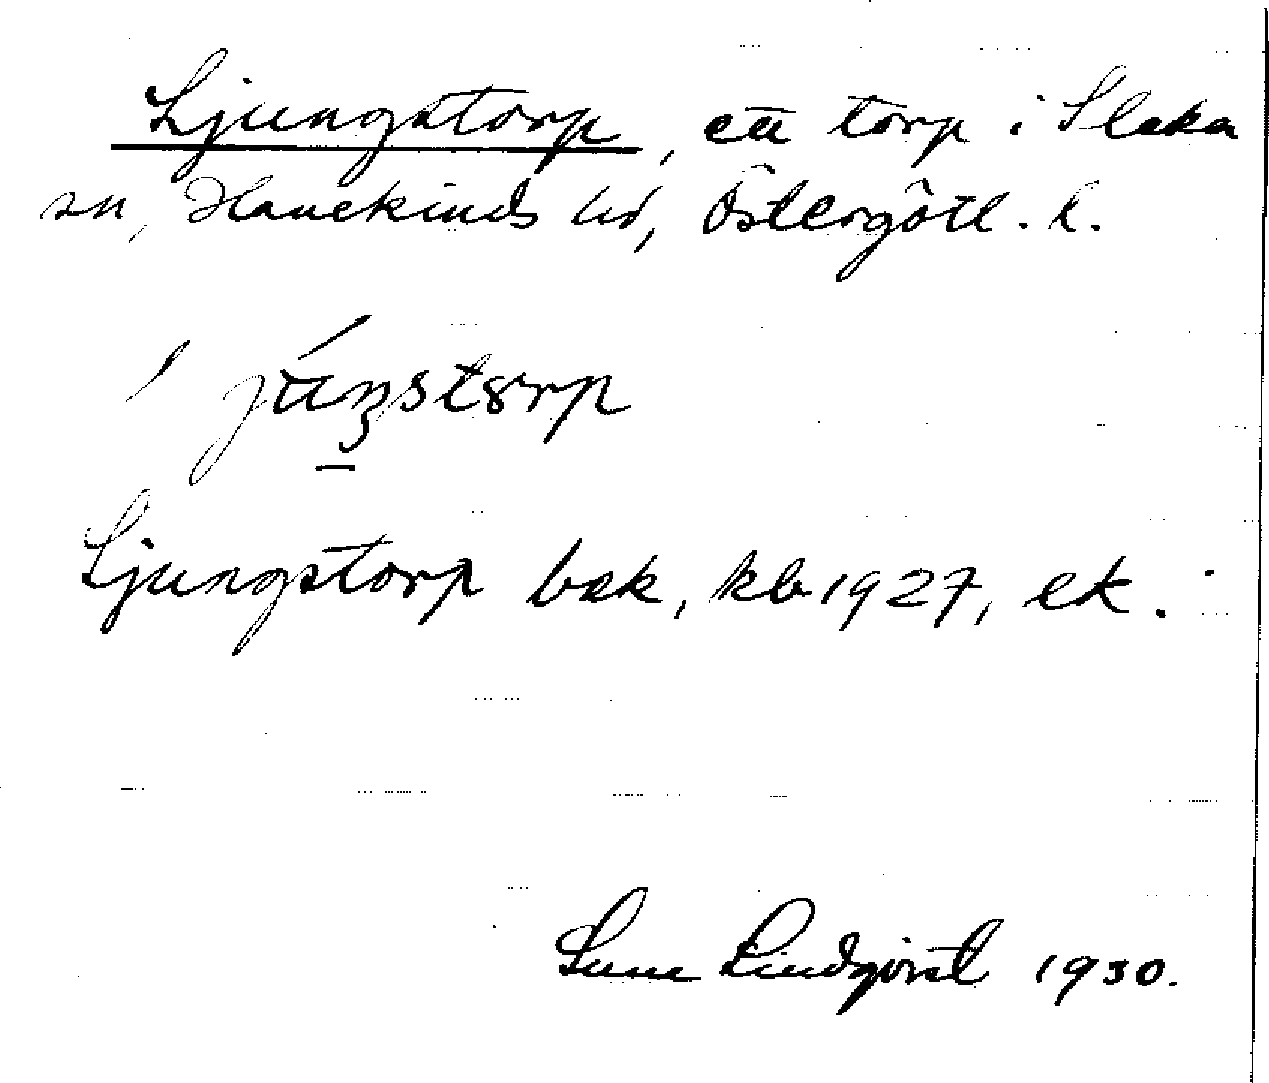 Ljungstorp, ett torp i Slaka
sn, Hanekinds hd, Östergötl. l.
Ljungstorp bsk, kb 1927, ek.
Sune Lindqvist 1930.